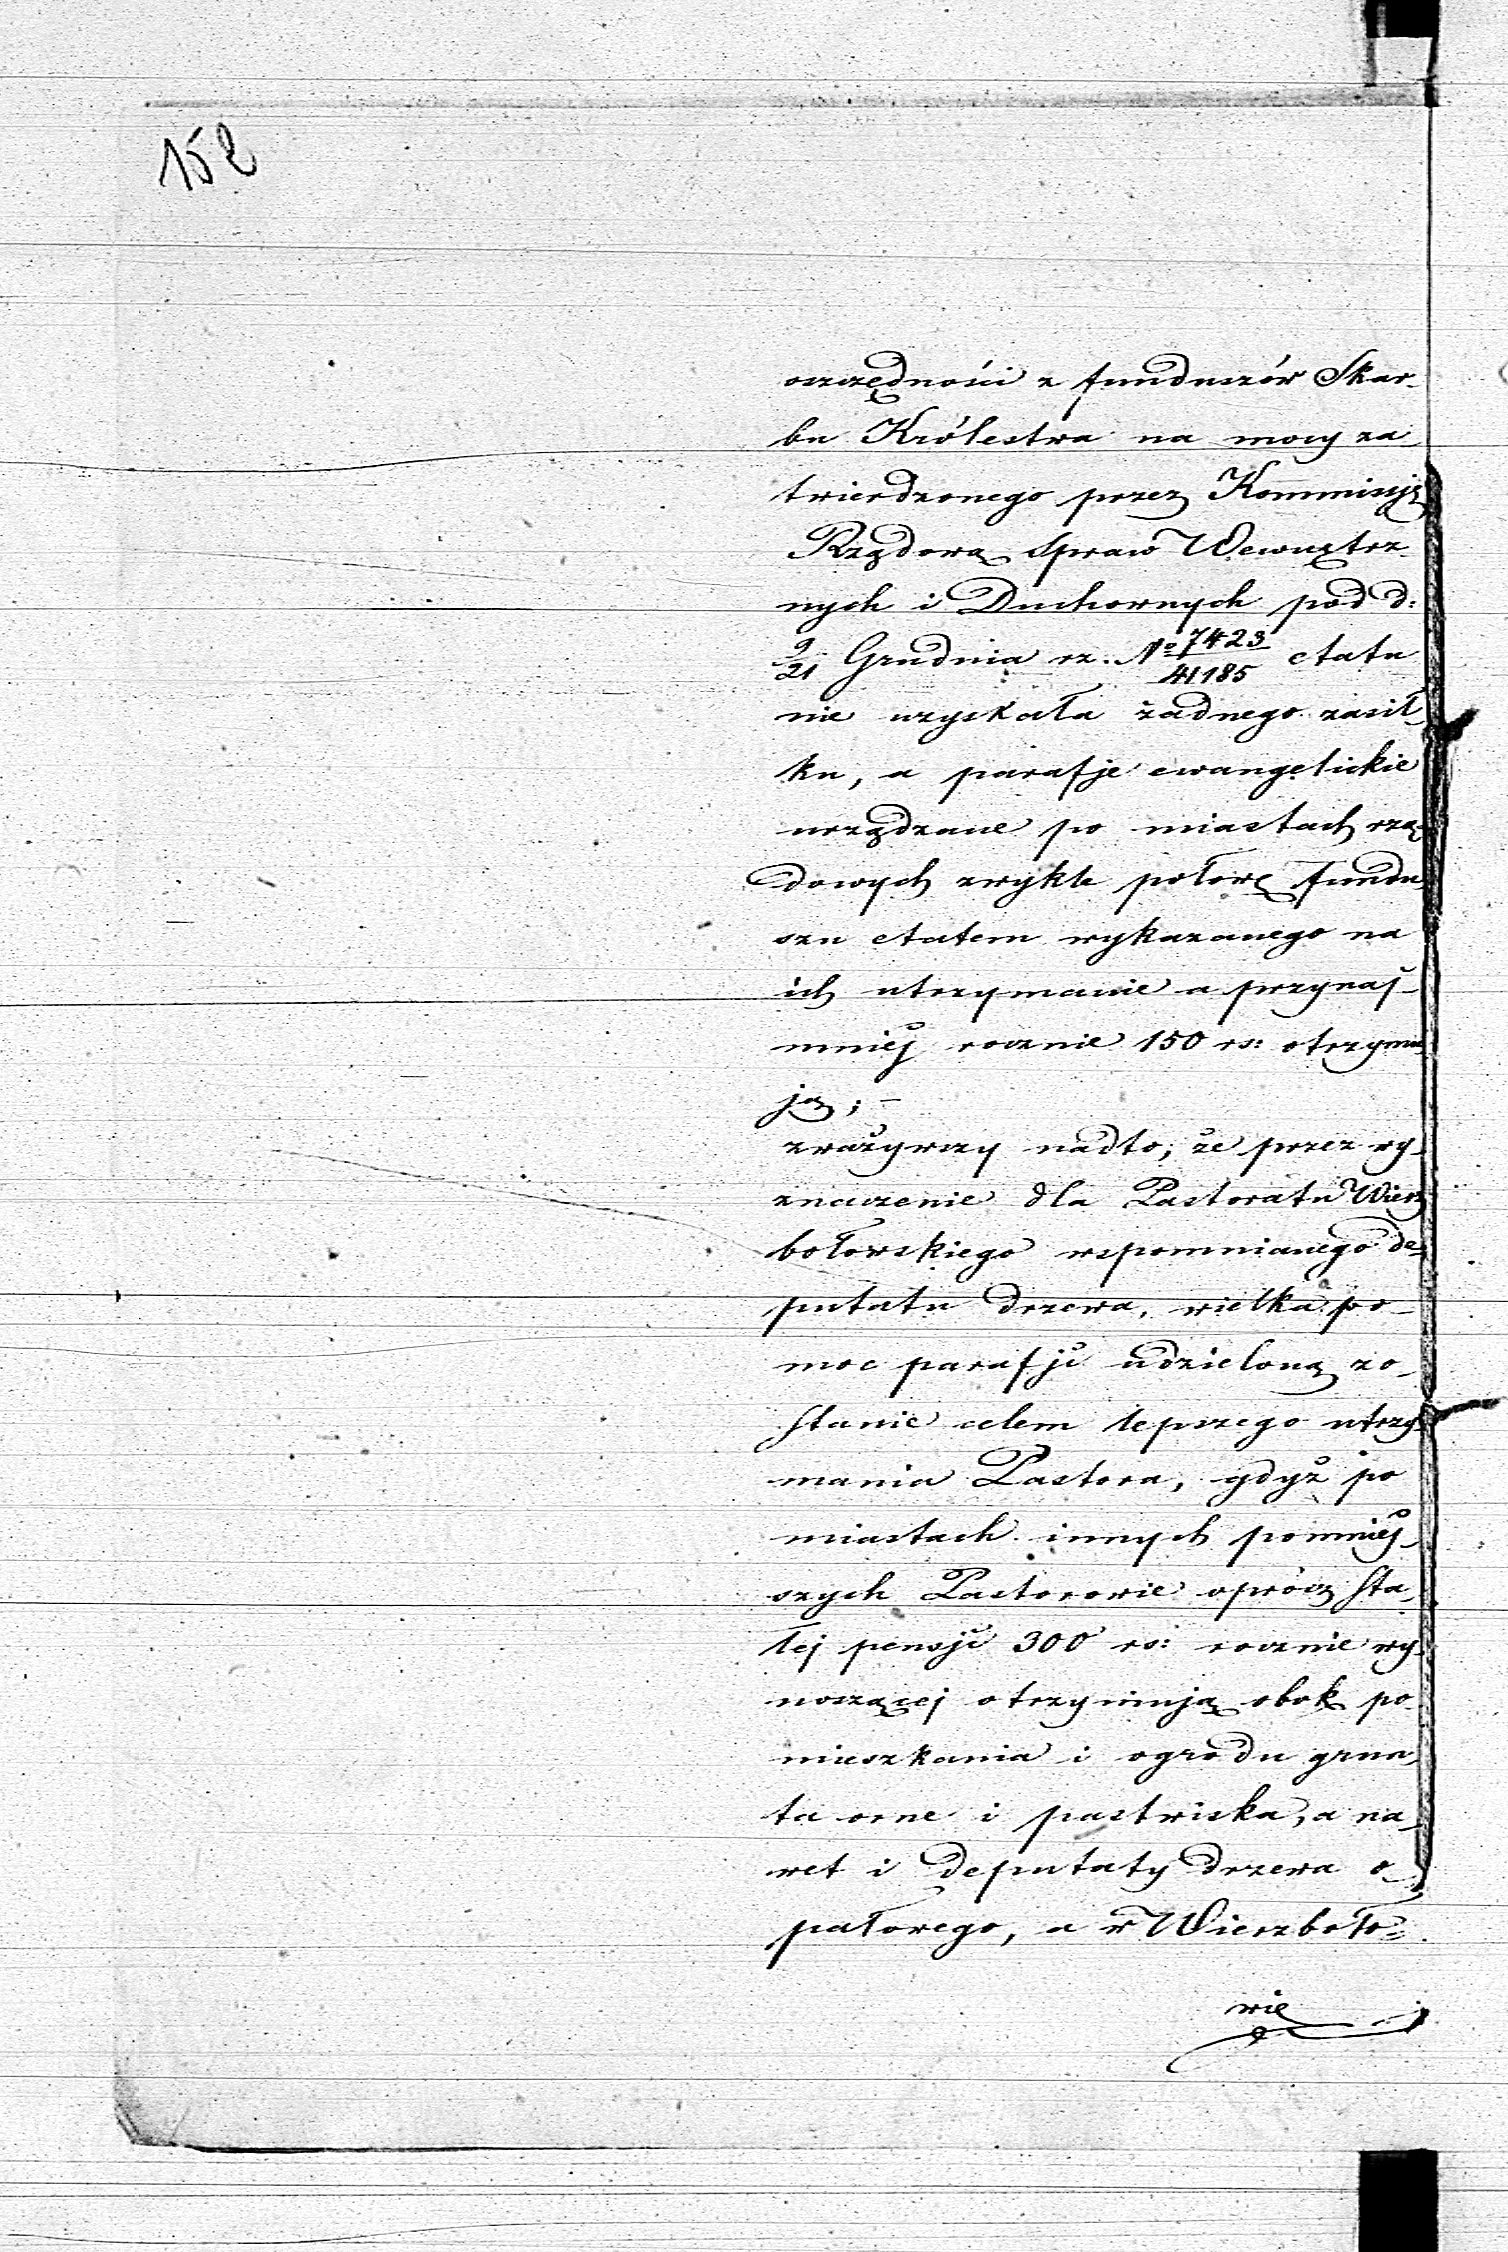 152
oszczędności z funduszów Skar-
bu Królestwa na mocy za-
twierdzonego przez Kommissję
Rządową Spraw Wewnętrz-
nych i Duchownych pod d:
9/21 Grudnia rz. No 7423/41185 etatu
nie uzyskała żadnego zasił-
ku, a parafje ewangelickie
urządzane po miastach rzą-
dowych zwykle połowę fundu-
szu etatem wykazanego na
ich utrzymanie a przynaj-
mniej rocznie 150 rs: otrzymu-
ją; –
zważywszy nadto; że przez wy-
znaczenie dla Pastoratu Wierz-
bołowskiego wspomnianego de-
putatu drzewa, wielka po-
moc parafji udzieloną zo-
stanie celem lepszego utrzy-
mania Pastora, gdyż po
miastach innych pomniej-
szych Pastorowie oprócz sta-
łej pensji 300 rs: rocznie wy-
noszącej otrzymują obok po-
mieszkania i ogrodu grun-
ta orne i pastwiska, a na-
wet i deputaty drzewa o-
pałowego, a w Wierzboło-
wie